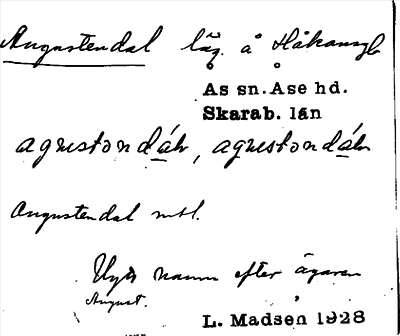 Augustendal läg. å Håkansg
Ås sn. Åse hd.
Skarab. län
agustondáɩ, agustondáɩ
Augustendal mtl.
Nytt namn efter ägaren
August.
L. Madsen 1928